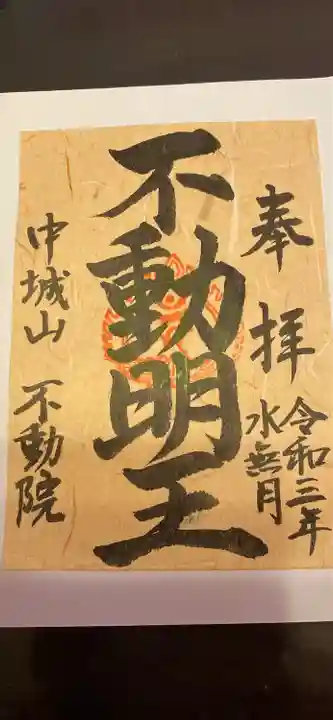 奉拝
令和三年
水無月
不動明王
中城山 不動院